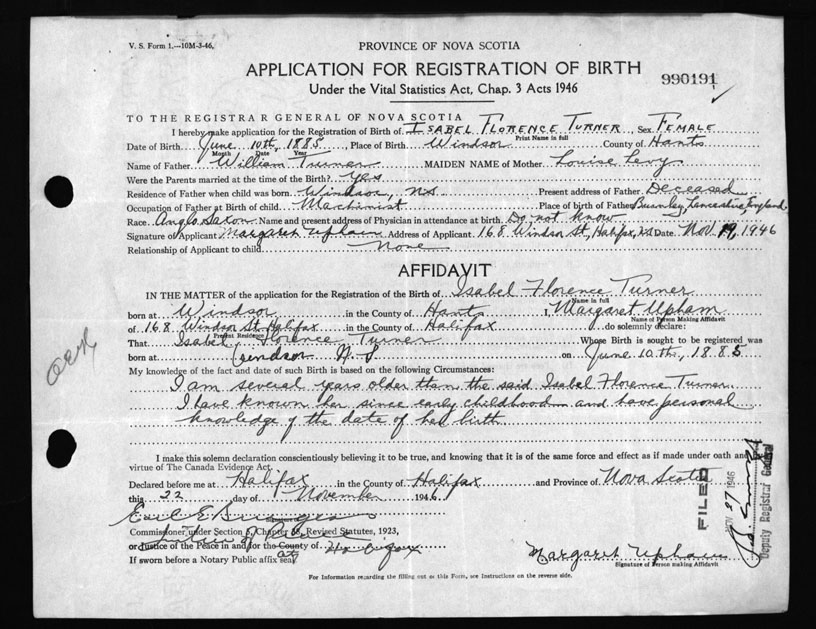 V. S. Form 1.—10M-3-46.
PROVINCE OF NOVA SCOTIA
APPLICATION FOR REGISTRATION OF BIRTH
990191
Under the Vital Statistics Act, Chap. 3 Acts 1946
TO THE REGISTRAR GENERAL OF NOVA SCOTIA
I hereby make application for the Registration of Birth of ISABEL FLORENCE TURNER, Sex FEMALE
Print Name in full
Date of Birth June 10th, 1885, Place of Birth Windsor County of Hants
Month Date Year
Name of Father William Turner MAIDEN NAME of Mother Louise Levy
Were the Parents married at the time of the Birth? Yes
Residence of Father when child was born Windsor, N.S Present address of Father Deceased
Occupation of Father at Birth of child Machinist Place of birth of Father Burnley, Lancashire, England.
Race Anglo Saxon Name and present address of Physician in attendance at birth. Do not know
Signature of Applicant Margaret Upham Address of Applicant 168 Windsor St, Halifax, N.S Date Nov 19, 1946
Relationship of Applicant to child None
AFFIDAVIT
IN THE MATTER of the application for the Registration of the Birth of Isabel Florence Turner
Name in full
born at Windsor in the County of Hants I, Margaret Upham
Name of Person Making Affidavit
of 168 Windsor St Halifax in the County of Halifax do solemnly declare:
Present Residence
That Isabel Florence Turner Whose Birth is sought to be registered was
born at Windsor N.S on June 10th, 1885
My knowledge of the fact and date of such Birth is based on the following Circumstances:
I am several years older than the said Isabel Florence Turner.
I have known her since early childhood and have personal
knowledge of the date of her birth
I make this solemn declaration conscientiously believing it to be true, and knowing that it is of the same force and effect as if made under oath and by
virtue of The Canada Evidence Act.
Declared before me at Halifax in the County of Halifax and Province of Nova Scotia
this 22 day of November 1946
Earl E
Commissioner under Section 5, Chapter 38, Revised Statutes, 1923,
or Justice of the Peace in and for the County of
If sworn before a Notary Public affix seal
Margaret Upham
Signature of Person making Affidavit
For Information regarding the filling out of this Form, see Instructions on the reverse side.
FILED
NOV 27 1946
Deputy Registrar General